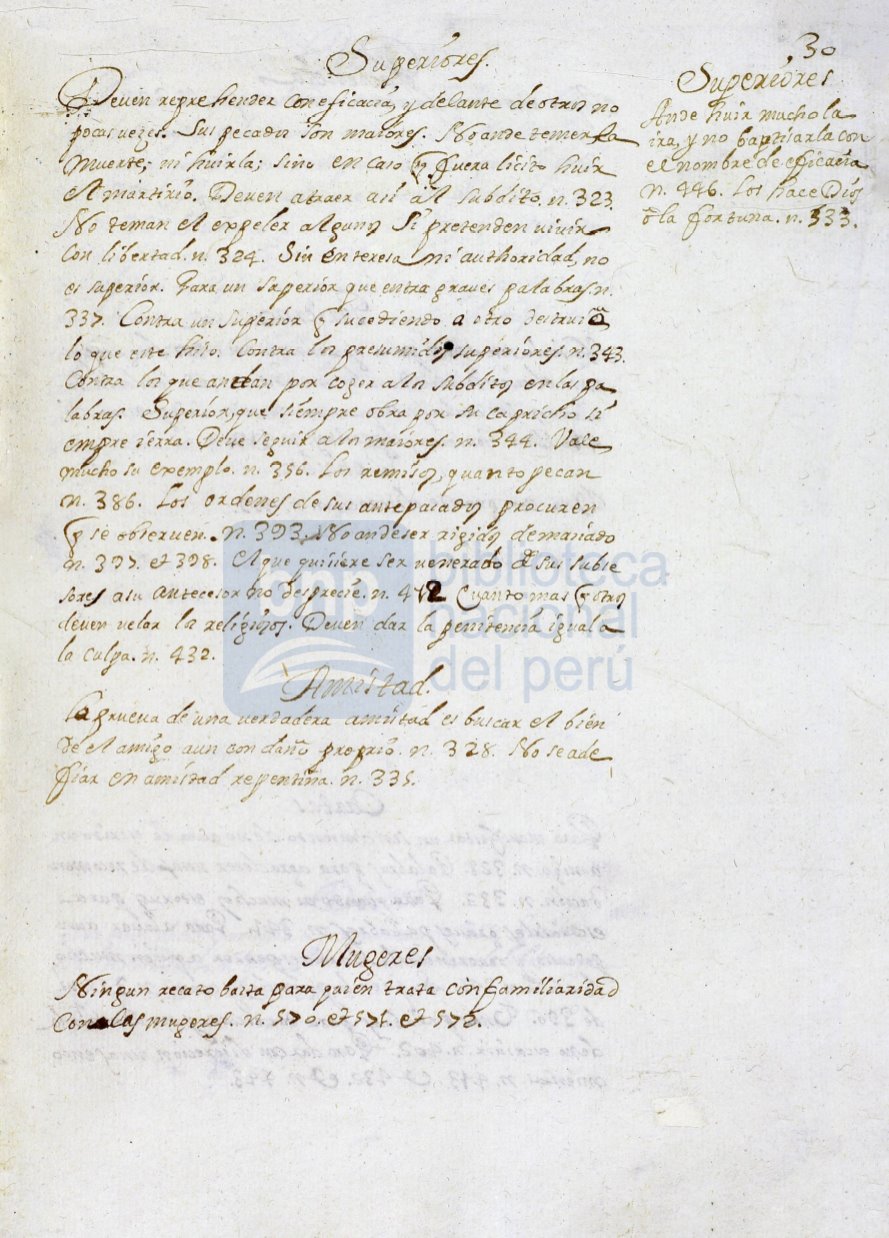 30
Superiores.
Deven reprehender con eficacia, y delante de otros no
pocas vezes. Sus pecados son maiores. No ande temer la
muerte, ni huirla; sino en caso q̃ fuera licito huir
el martirio. Deven atraer asi al subdito. n. 323.
No teman el expeler algunos si pretenden vivir
con libertad. n. 324. Sin entereza ni authoridad, no
es superior. Para un superior que entra graves palabras. n.
337. Contra un superior q̃ sucediendo a otro destruia
lo que este hizo. Contra los presumidos superiores. n. 343.
Contra los que andan por coger a los subditos en las pa
labras. Superior, que siempre obra por su capricho si
empre ierra. Deve seguir a los maiores. n. 344. Vale
mucho su exemplo. n. 356. Los remisos, quanto pecan
n. 386. Los ordenes de sus antepasados procuren
q̃ se observen. n. 393. No ande ser rigidos demasiado
n. 397. et 398. El que quisiere ser venerado de sus subse
sores a su antecesor no desprecie. n. 412 Cuanto mas q̃ otros
deven velar los religiosos. Deven dar la penitencia igual a
la culpa. n. 432.
Superiores
Ande huir mucho la
ira, y no baptisarla con
el nombre de eficacia
n. 446. Los hace Dios
o la fortuna. n. 533.
Amistad.
La prueva de una verdadera amistad es buscar el bien
de el amigo aun con daño proprio. n. 328. No se a de
fiar en amistad repentina. n. 335.
Mugeres
Ningun recato basta para quien trata con familiaridad
con las mugeres. n. 570. et 571. et 572.
bnp biblioteca
nacional
del perú